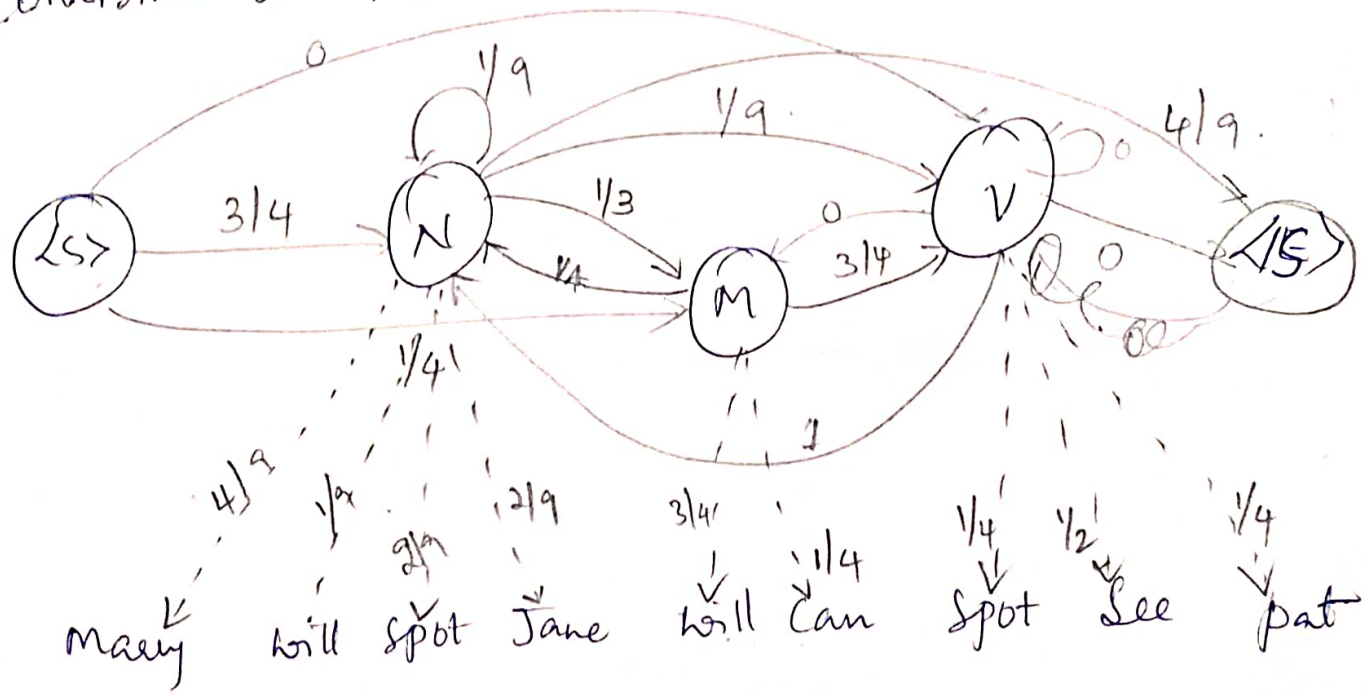 0
1/9
1/9
4/9
3/4
1/3
0
0
<s> N M V </s>
1/4
3/4
0
1/4
1
4/9 1/9 2/9 2/9 3/4 1/4 1/4 1/2 1/4
Mary will spot Jane will Can spot See pat